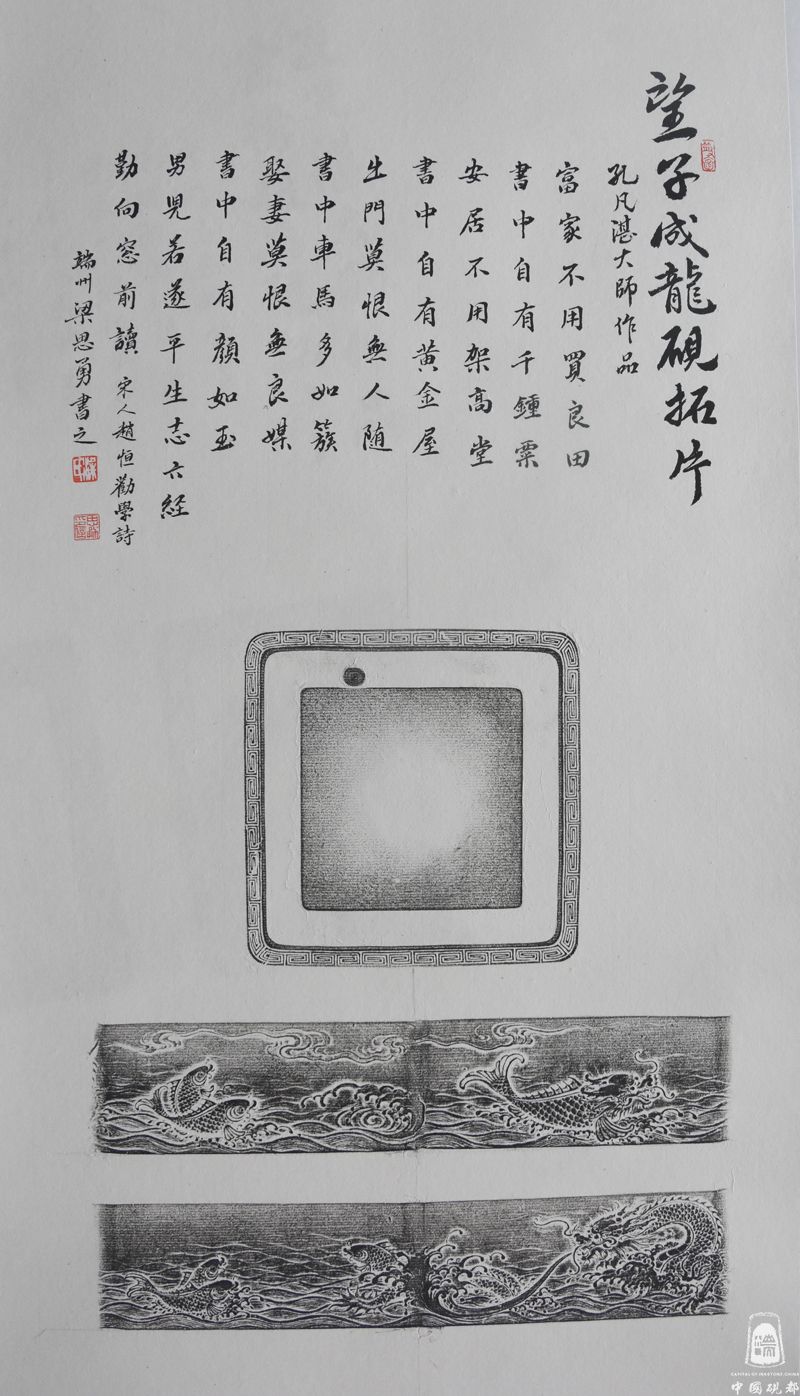 望子成龍硯拓片
孔凡湛大師作品
富家不用買良田
書中自有千鍾粟
安居不用架高堂
書中自有黃金屋
出門莫恨無人随
書中車馬多如簇
娶妻莫恨無良媒
書中自有顏如玉
男児若遂平生志六経
勤向窓前讀 宋人趙恒勸學詩
端州梁思勇書之
端
CAPITAL OF INKSTONE, CHINA
中國硯都